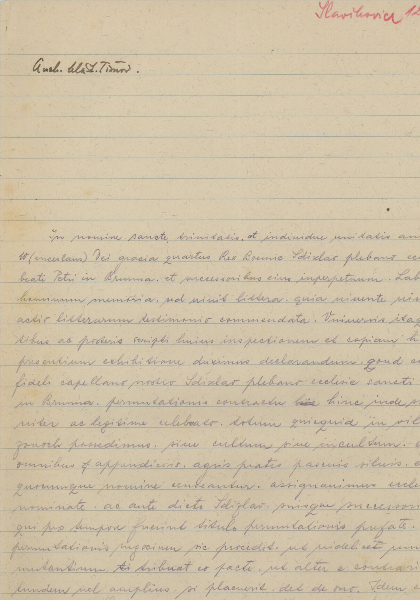 Slavikovice
In nomine sancte trinitatis et individue unitatis am
W (incenlaus) Dei gracia quartus Rex Boemie Sdizlao plebano ecc
beati Petri in Brunna et successoribus eius inperpetuum. Lab
hominum memoria, vel vivit littera, quia vivente
actio litterarum testimonio commendata. Universis itaq
tibus ac posteris scripti huius inspectionem et copiam h
presentium exhibitione duximus declarandum quod c
fideli capellano nostro Sdizlao plebano ecclesie sancti
in Brunna permutationis contractu hinc inde
rite ac legitime celebrato totum quicquid in vil
possedimus sive cultum sive incultum
omnibus appendiciis agris pratis pascuis silvis
quocumque nomine censeantur assignavimus eccle
nominate ac ante dicto Sdizlao suisque successori
qui pro tempore fuerint titulo permutationis
permutationis negocium sic procedit ut videlicet
mutantium tribuat ex facto ut alter e contrari
tundem vel amplius si placuerit det de suo. Idem